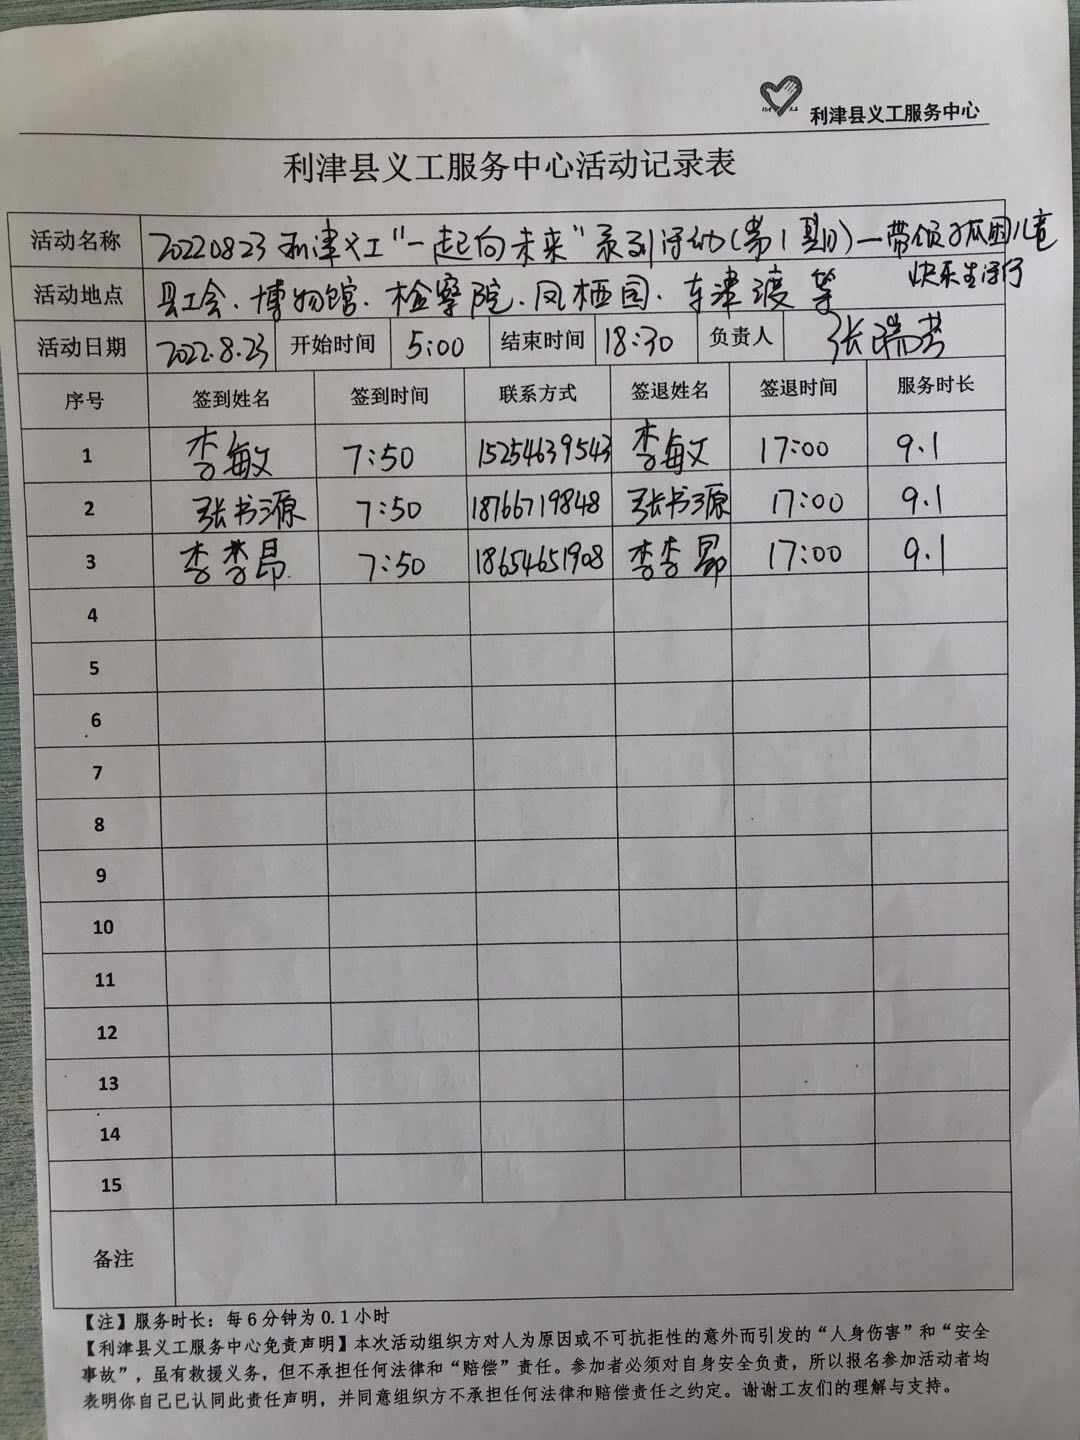 利津县义工服务中心
利津县义工服务中心活动记录表
活动名称 20220823利津义工“一起向未来”系列活动(第1期)—带领孤困儿童
快乐生活行
活动地点 县工会.博物馆.检察院.凤栖园.东津渡等
活动日期 2022.8.23 开始时间 5:00 结束时间 18:30 负责人 张瑞芳
序号 签到姓名 签到时间 联系方式 签退姓名 签退时间 服务时长
1 李敏 7:50 15254639543 李敏 17:00 9.1
2 张书源 7:50 18766719848 张书源 17:00 9.1
3 李李昂 7:50 18654651908 李李昂 17:00 9.1
4
5
6
7
8
9
10
11
12
13
14
15
备注
【注】服务时长：每6分钟为0.1小时
【利津县义工服务中心免责声明】本次活动组织方对人为原因或不可抗拒性的意外而引发的“人身伤害”和“安全
事故”，虽有救援义务，但不承担任何法律和“赔偿”责任。参加者必须对自身安全负责，所以报名参加活动者均
表明你自己已认同此责任声明，并同意组织方不承担任何法律和赔偿责任之约定。谢谢工友们的理解与支持。